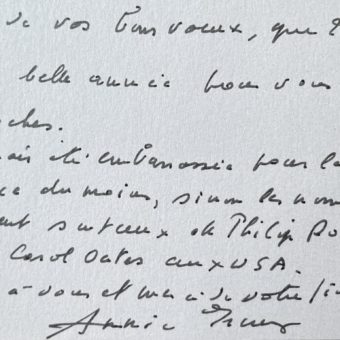 de vos bons voeux, que 2
belle année pour vous
ches.
été embarrassée pour la
du moins, sinon les nom
surtaux de Philip Ro
Carol Oates aux USA.
à vous et merci de votre
Annie Ernaux